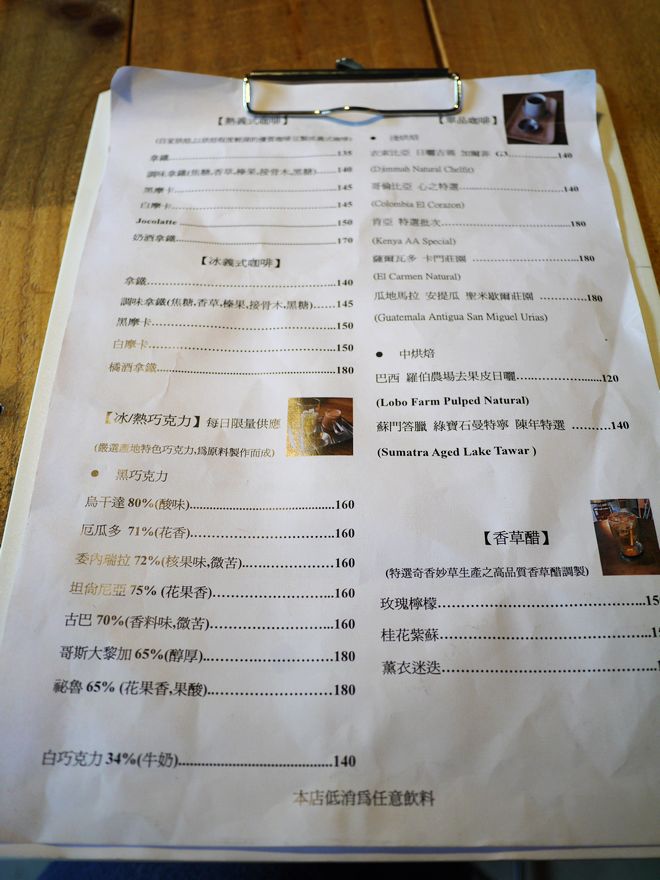 【熱義式咖啡】
拿鐵 135
調味拿鐵(焦糖,香草,榛果,接骨木,黑糖) 140
黑摩卡 145
白摩卡 145
Jocolatte 150
奶酒拿鐵 170
【冰義式咖啡】
拿鐵 140
調味拿鐵(焦糖,香草,榛果,接骨木,黑糖) 145
黑摩卡 150
白摩卡 150
橘酒拿鐵 180
【冰/熱巧克力】每日限量供應
(嚴選產地特色巧克力,為原料製作而成)
● 黑巧克力
烏干達 80%(酸味) 160
厄瓜多 71%(花香) 160
委內瑞拉 72%(核果味,微苦) 160
坦尚尼亞 75% (花果香) 160
古巴 70%(香料味,微苦) 160
哥斯大黎加 65%(醇厚) 180
祕魯 65% (花果香,果酸) 180
白巧克力 34%(牛奶) 140
【單品咖啡】
● 淺烘焙
衣索比亞 日曬古瑪 加爾菲 G3 140
(Djimmah Natural Chelfit)
哥倫比亞 心之特選 140
(Colombia El Corazon)
肯亞 特選批次 180
(Kenya AA Special)
薩爾瓦多 卡門莊園 180
(El Carmen Natural)
瓜地馬拉 安提瓜 聖米歇爾莊園 180
(Guatemala Antigua San Miguel Urias)
● 中烘焙
巴西 羅伯農場去果皮日曬 120
(Lobo Farm Pulped Natural)
蘇門答臘 綠寶石曼特寧 陳年特選 140
(Sumatra Aged Lake Tawar )
【香草醋】
(特選奇香妙草生產之高品質香草醋調製)
玫瑰檸檬
桂花紫蘇
薰衣迷迭
本店低消為任意飲料